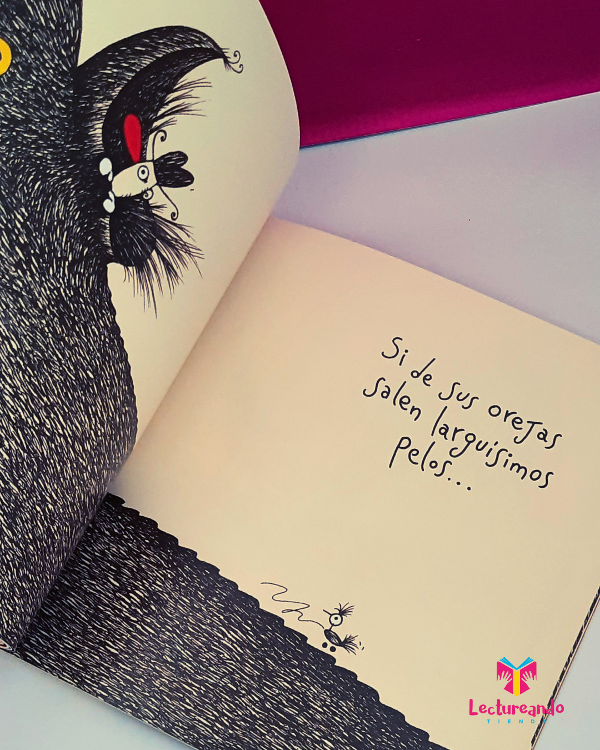 Si de sus orejas
salen larguísimos
pelos...
Lectureando
TIENDA